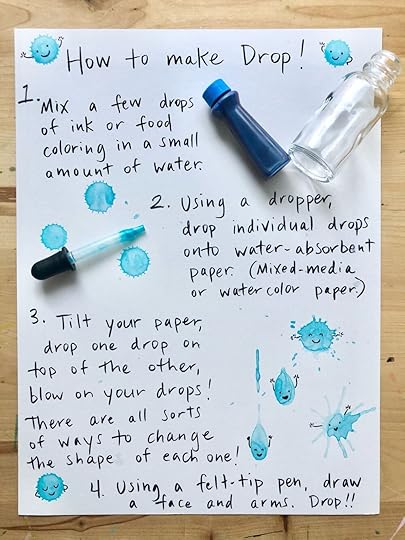 How to make Drop!
1. Mix a few drops
of ink or food
coloring in a small
amount of water.
2. Using a dropper,
drop individual drops
onto water-absorbent
paper. (Mixed-media
or watercolor paper.)
3. Tilt your paper,
drop one drop on
top of the other,
blow on your drops!
There are all sorts
of ways to change
the shape of each one!
4. Using a felt-tip pen, draw
a face and arms. Drop!!